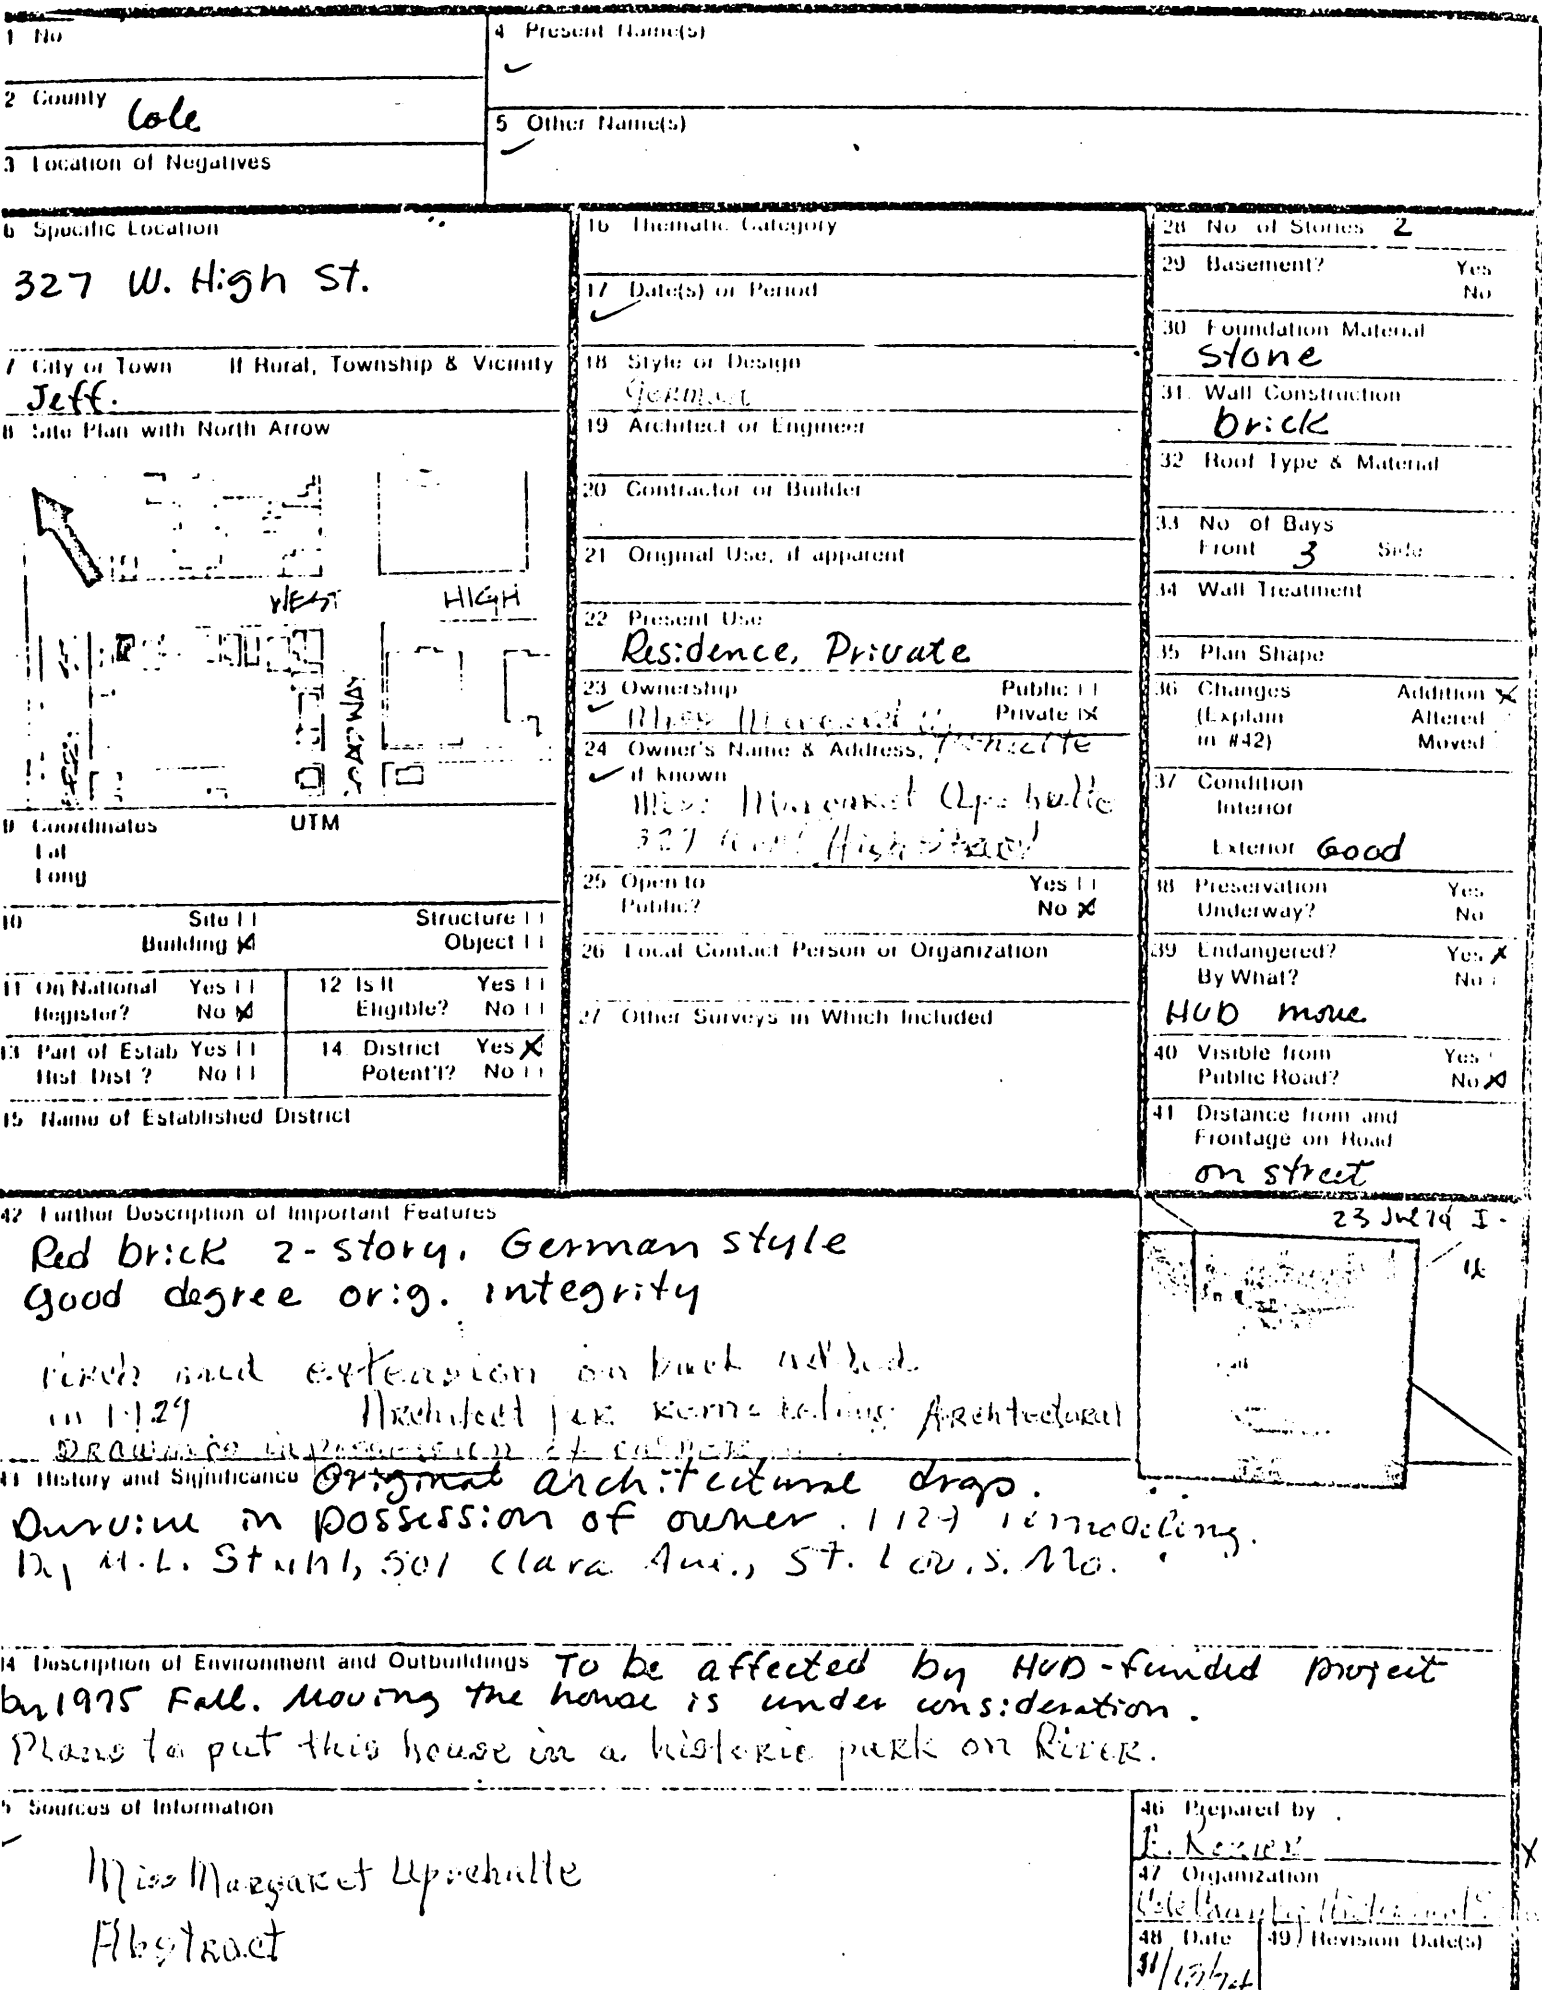 1 No
4 Present Name(s)
2 County Cole
5 Other Name(s)
3 Location of Negatives
6 Specific Location
327 W. High St.
7 City or Town If Rural, Township & Vicinity
Jeff.
8 Site Plan with North Arrow
WEST HIGH
BROADWAY
9 Coordinates UTM
Lat
Long
10 Site
Structure
Building X
Object
11 On National Register? Yes No X
12 Is It Eligible? Yes No
13 Part of Estab Hist Dist? Yes No
14 District Potent'l? Yes X No
15 Name of Established District
16 Thematic Category
17 Date(s) or Period
18 Style or Design
German
19 Architect or Engineer
20 Contractor or Builder
21 Original Use, if apparent
22 Present Use
Residence, Private
23 Ownership Public
Private X
Miss Margaret
24 Owner's Name & Address,
if known
Miss Margaret Upschulte
327 West High Street
25 Open to Public? Yes No X
26 Local Contact Person or Organization
27 Other Surveys in Which Included
28 No of Stories 2
29 Basement? Yes
No
30 Foundation Material
Stone
31. Wall Construction
brick
32 Roof Type & Material
33 No of Bays
Front 3 Side
34 Wall Treatment
35 Plan Shape
36 Changes Addition X
(Explain Altered
in #42) Moved
37 Condition
Interior
Exterior Good
38 Preservation Yes
Underway? No
39 Endangered? Yes X
By What? No
HUD move
40 Visible from Yes
Public Road? No X
41 Distance from and
Frontage on Road
on street
42 Further Description of Important Features
Red brick 2-story. German style
Good degree orig. integrity
and extension on back added
in 1929 Architect for remodeling Architectural
Drawings in possession of
23 Jul 74 I-
16
43 History and Significance Original architectural drgs.
in possession of owner. remodeling.
By H.L. Stuhl, 501 Clara Ave., St. Louis. Mo.
44 Description of Environment and Outbuildings To be affected by HUD-funded project
by 1975 Fall. Moving the house is under consideration.
Plans to put this house in a historic park on River.
45 Sources of Information
Miss Margaret Upschulte
Abstract
46 Prepared by
47 Organization
Cole County Historical
48 Date 49 Revision Date(s)